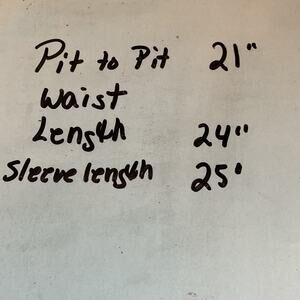 Pit to Pit 21"
Waist
Length 24"
Sleeve length 25'